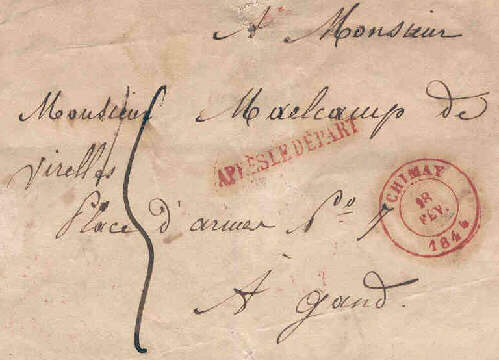 A Monsieur
Monsieur Maelcamp de
virelles
APRES LE DEPART
CHIMAY
18
FEV.
1844
Place d'armes N.o 7
A gand.
5